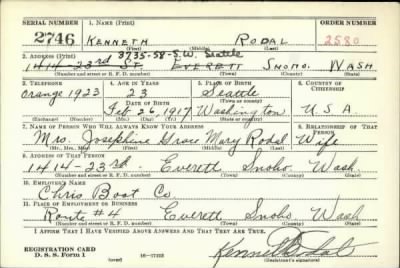 SERIAL NUMBER 1. NAME (Print) ORDER NUMBER
2746 KENNETH RODAL 2580
(First) (Middle) (Last)
3735-58-S.W. Seattle
2. ADDRESS (Print)
1414-23rd St. EVERETT SNOHO. WASH
(Number and street or R. F. D. number) (Town) (County) (State)
3. TELEPHONE 4. AGE IN YEARS 5. PLACE OF BIRTH 6. COUNTRY OF CITIZENSHIP
Orange 1923 23 Seattle
DATE OF BIRTH (Town or county)
Feb 26, 1917 Washington U.S.A
(Exchange) (Number) (Mo.) (Day) (Yr.) (State or country)
7. NAME OF PERSON WHO WILL ALWAYS KNOW YOUR ADDRESS 8. RELATIONSHIP OF THAT PERSON
Mrs. Josephine Grace Mary Rodal Wife
(Mr., Mrs., Miss) (First) (Middle) (Last)
9. ADDRESS OF THAT PERSON
1414-23rd Everett Snoho. Wash.
(Number and street or R. F. D. number) (Town) (County) (State)
10. EMPLOYER'S NAME
Chris Boat Co.
11. PLACE OF EMPLOYMENT OR BUSINESS
Route #4 Everett Snoho Wash
(Number and street or R. F. D. number) (Town) (County) (State)
I AFFIRM THAT I HAVE VERIFIED ABOVE ANSWERS AND THAT THEY ARE TRUE.
REGISTRATION CARD
D. S. S. Form 1 (over) 16-17105
Kenneth Rodal
(Registrant's signature)